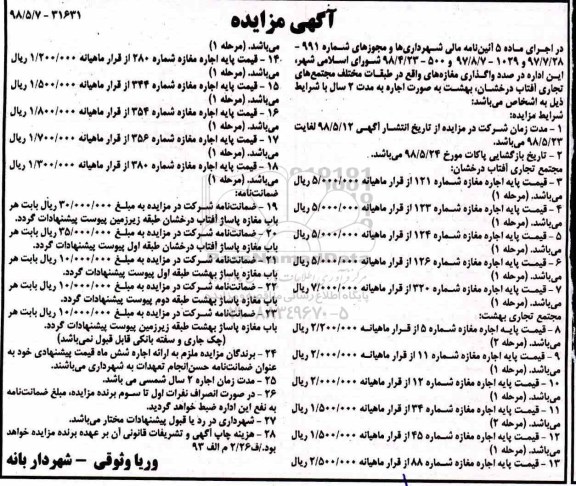 ۳۱۶۳۱ - ۹۸/۵/۷
آگهی مزایده
در اجرای ماده ۵ آئین‌نامه مالی شهرداری‌ها و مجوزهای شماره ۹۹۱ -
۹۷/۷/۲۸ و ۱۰۲۹ - ۹۷/۸/۷ و ۵۰۰ - ۹۸/۴/۲۳ شورای اسلامی شهر،
این اداره در صدد واگذاری مغازه‌های واقع در طبقات مختلف مجتمع‌های
تجاری آفتاب درخشان، بهشت به صورت اجاره به مدت ۲ سال با شرایط
ذیل به اشخاص می‌باشد:
شرایط مزایده:
۱ - مدت زمان شرکت در مزایده از تاریخ انتشار آگهی ۹۸/۵/۱۲ لغایت
۹۸/۵/۲۳ می‌باشد.
۲ - تاریخ بازگشایی پاکات مورخ ۹۸/۵/۲۴ می‌باشد.
مجتمع تجاری آفتاب درخشان:
۳ - قیمت پایه اجاره مغازه شماره ۱۲۱ از قرار ماهیانه ۵/۰۰۰/۰۰۰ ریال
می‌باشد. (مرحله ۱)
۴ - قیمت پایه اجاره مغازه شماره ۱۲۳ از قرار ماهیانه ۵/۰۰۰/۰۰۰ ریال
می‌باشد. (مرحله ۱)
۵ - قیمت پایه اجاره مغازه شماره ۱۲۴ از قرار ماهیانه ۵/۰۰۰/۰۰۰ ریال
می‌باشد. (مرحله ۱)
۶ - قیمت پایه اجاره مغازه شماره ۱۲۶ از قرار ماهیانه ۵/۰۰۰/۰۰۰ ریال
می‌باشد. (مرحله ۱)
۷ - قیمت پایه اجاره مغازه شماره ۳۲۰ از قرار ماهیانه ۷/۰۰۰/۰۰۰ ریال
می‌باشد. (مرحله ۱)
مجتمع تجاری بهشت:
۸ - قیمت پایه اجاره مغازه شماره ۵ از قرار ماهیانه ۲/۲۰۰/۰۰۰ ریال
می‌باشد. (مرحله ۲)
۹ - قیمت پایه اجاره مغازه شماره ۱۱ از قرار ماهیانه ۲/۰۰۰/۰۰۰ ریال
می‌باشد. (مرحله ۱)
۱۰ - قیمت پایه اجاره مغازه شماره ۱۲ از قرار ماهیانه ۲/۰۰۰/۰۰۰ ریال
می‌باشد. (مرحله ۲)
۱۱ - قیمت پایه اجاره مغازه شماره ۳۴ از قرار ماهیانه ۱/۵۰۰/۰۰۰ ریال
می‌باشد. (مرحله ۲)
۱۲ - قیمت پایه اجاره مغازه شماره ۴۵ از قرار ماهیانه ۱/۵۰۰/۰۰۰ ریال
می‌باشد. (مرحله ۱)
۱۳ - قیمت پایه اجاره مغازه شماره ۸۸ از قرار ماهیانه ۲/۵۰۰/۰۰۰ ریال
می‌باشد. (مرحله ۱)
۱۴ - قیمت پایه اجاره مغازه شماره ۲۸۰ از قرار ماهیانه ۱/۲۰۰/۰۰۰ ریال
می‌باشد. (مرحله ۱)
۱۵ - قیمت پایه اجاره مغازه شماره ۳۴۴ از قرار ماهیانه ۱/۵۰۰/۰۰۰ ریال
می‌باشد. (مرحله ۱)
۱۶ - قیمت پایه اجاره مغازه شماره ۳۵۴ از قرار ماهیانه ۱/۸۰۰/۰۰۰ ریال
می‌باشد. (مرحله ۱)
۱۷ - قیمت پایه اجاره مغازه شماره ۳۵۶ از قرار ماهیانه ۱/۷۰۰/۰۰۰ ریال
می‌باشد. (مرحله ۱)
۱۸ - قیمت پایه اجاره مغازه شماره ۳۸۰ از قرار ماهیانه ۱/۳۰۰/۰۰۰ ریال
می‌باشد. (مرحله ۱)
ضمانت‌نامه:
۱۹ - ضمانت‌نامه شرکت در مزایده به مبلغ ۳۰/۰۰۰/۰۰۰ ریال بابت هر
باب مغازه پاساژ آفتاب درخشان طبقه زیرزمین پیوست پیشنهادات گردد.
۲۰ - ضمانت‌نامه شرکت در مزایده به مبلغ ۳۵/۰۰۰/۰۰۰ ریال بابت هر
باب مغازه پاساژ آفتاب درخشان طبقه اول پیوست پیشنهادات گردد.
۲۱ - ضمانت‌نامه شرکت در مزایده به مبلغ ۱۰/۰۰۰/۰۰۰ ریال بابت هر
باب مغازه پاساژ بهشت طبقه اول پیوست پیشنهادات گردد.
۲۲ - ضمانت‌نامه شرکت در مزایده به مبلغ ۱۰/۰۰۰/۰۰۰ ریال بابت هر
باب مغازه پاساژ بهشت طبقه دوم پیوست پیشنهادات گردد.
۲۳ - ضمانت‌نامه شرکت در مزایده به مبلغ ۱۰/۰۰۰/۰۰۰ ریال بابت هر
باب مغازه پاساژ بهشت طبقه زیرزمین پیوست پیشنهادات گردد.
(چک جاری و سفته بانکی قابل قبول نمی‌باشد)
۲۴ - برندگان مزایده ملزم به ارائه اجاره شش ماه قیمت پیشنهادی خود به
عنوان ضمانت‌نامه حسن‌انجام تعهدات به شهرداری می‌باشند.
۲۵ - مدت زمان اجاره ۲ سال شمسی می باشد.
۲۶ - در صورت انصراف نفرات اول تا سوم برنده مزایده، مبلغ ضمانت‌نامه
به نفع این اداره ضبط خواهد گردید.
۲۷ - شهرداری در رد یا قبول پیشنهادات مختار می‌باشد.
۲۸ - هزینه چاپ آگهی و تشریفات قانونی آن بر عهده برنده مزایده خواهد
بود./ف۲/۲۶ م الف ۹۳
وریا وثوقی - شهردار بانه